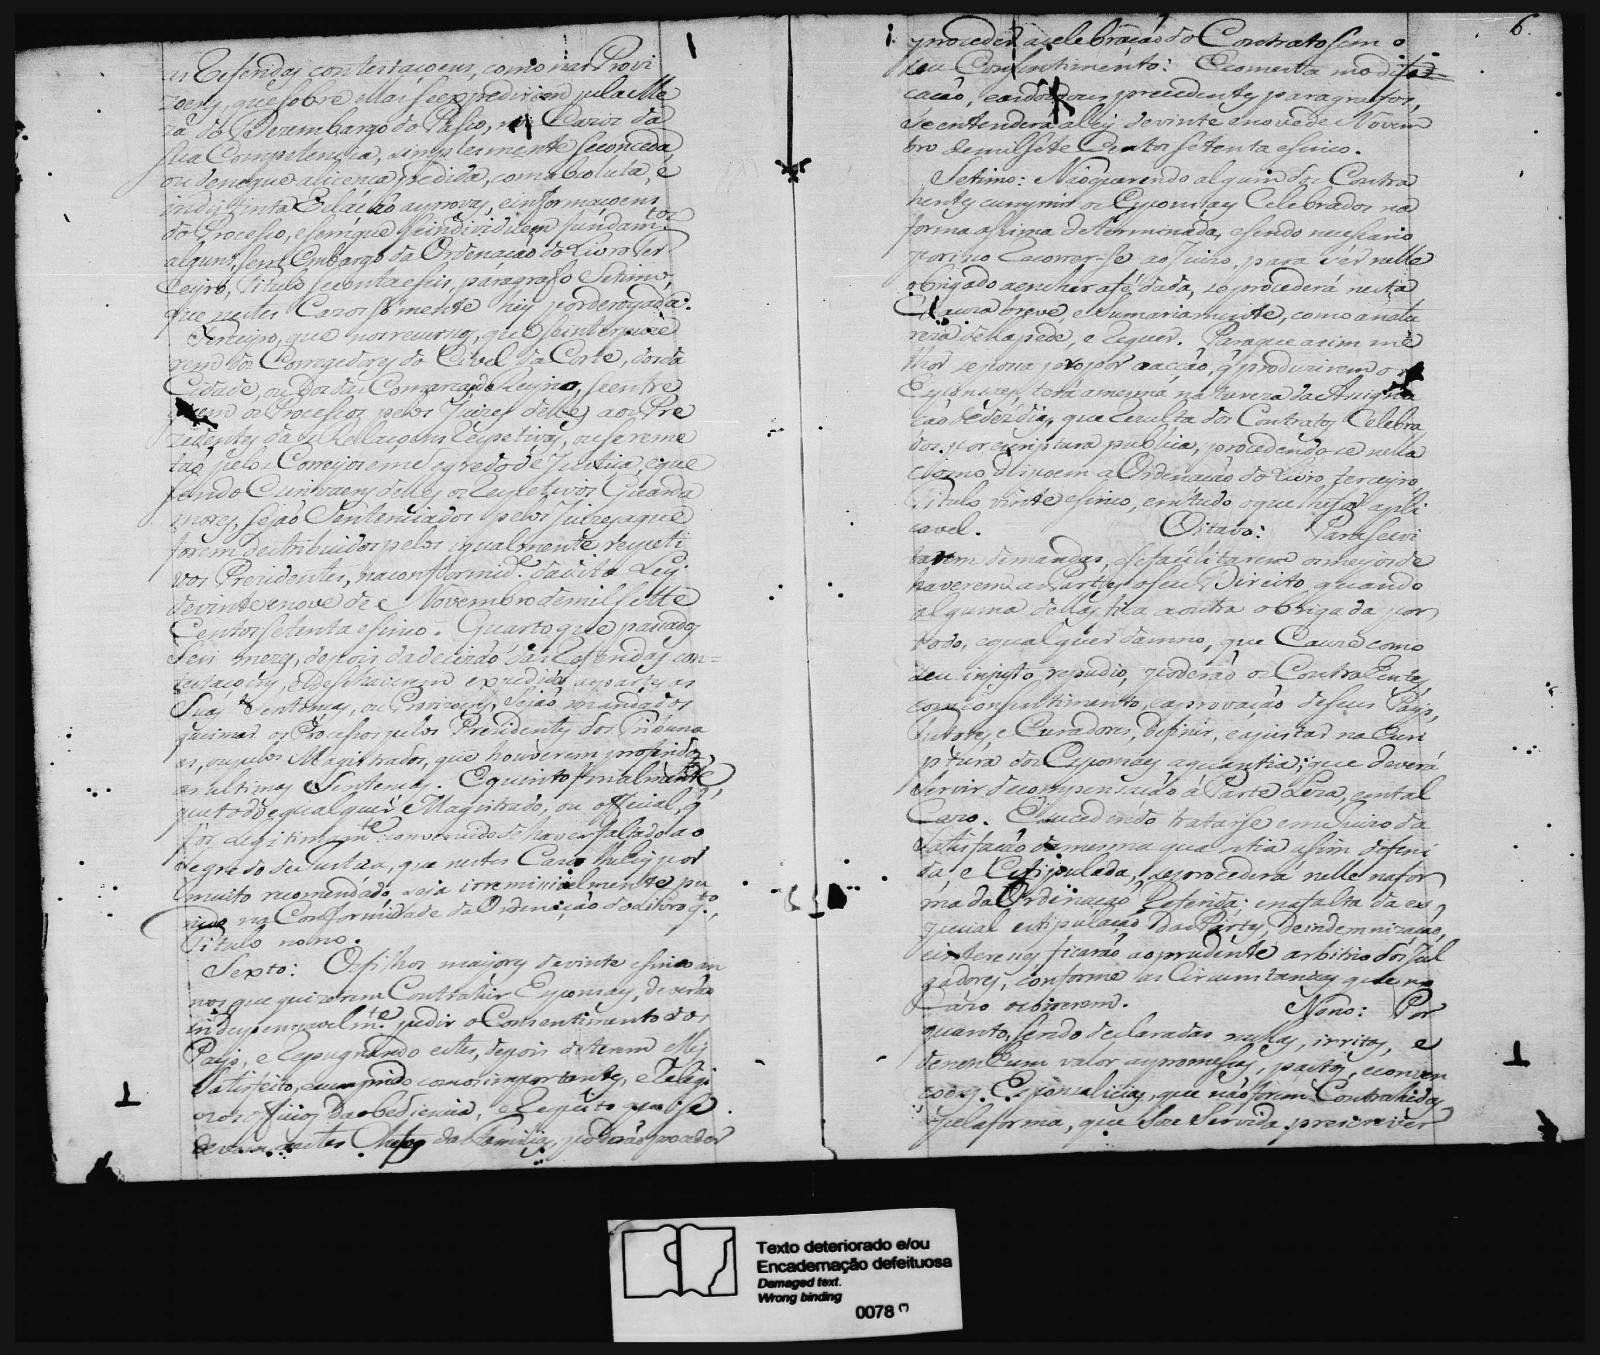 as Referidas contestaçoens, como nas Provi
zoens, que sobre ellas se expedirem pela Me
za do Dezembargo do Paço, nos Cazos da
sua Competencia, simplesmente se conceda,
ou denegue a licença pedida, com absoluta, e
indistinta Relação as provas, e informaçoens
do Processo, e sem que se individuem fundam.tos
alguns, sem Embargo da Ordenação do Livro Ter
ceyro, Titulo secenta e seis, paragrafo Setimo,
que nestes Cazos somente hey por derogada:
Terceyro, que nos recursos, que se interpoze
rem dos Corregedores do Civel da Corte, ou da
Cidade, ou das Comarcas do Reyno, se entre
guem os Processos pelos Juizes delles aos Pre
zidentes das Rellaçoens respetivas, ou se reme
tão pelos Correyos em segredo de Justiça, e que
sendo Conservadores delles os respetivos Guarda
mores, sejão Sentenciados pelos Juizes a que
forem destribuidos pelos igualmente respeti
vos Prezidentes, na conformid.e da dita Ley
de vinte e nove de Novembro de mil sette
Centos setenta e sinco. Quarto que passados
Seis mezes, depois da decizão das Referidas con=
testaçoens, e de se haverem expedido as partes as
Suas Sentenças, ou Provizoens, sejão mandados
queimar os Processos pelos Presidentes dos Tribuna
es, ou pelos Magistrados, que houverem proferido
as ultimas Sentenças. E quinto finalmente
que todo e qualquer Magistrado, ou official, q
for legitimam.te convencido de haver faltado ao
segredo de Justiça, que nestes Cazos hey por
muito recomendado, seja irremissivelmente pu
nido na Conformidade da Ordenação do Livro q.to,
Titulo nono.
Sexto: Os filhos mayores de vinte e sinco an
nos que quizerem Contrahir Esponsaes, deverão
indespensavelm.te pedir o Consentimento dos
Pays, e Repugnando estes, depois de terem elles
Satisfeito, e cumprido com os importantes, e Religi
ozos officios da obediencia, e Respeito que se
devem a estes Chefes das Familias, poderão proceder
6.
proceder a celebração do Contrato sem o
seu Consentimento: E com esta modifi
cação, e a dos dous precedentes paragrafos,
se entenderá a Ley de vinte e nove de Novem
bro de mil sete Centos setenta e sinco.
Setimo: Não querendo algum dos Contra
hentes cumprir os Esponsaes Celebrados na
forma assima determinada, e sendo necessario
por isso Recorrer-se ao Juizo, para ser nelle
obrigado a encher a fé dada, se procederá nesta
Cauza breve, e Sumariamente, como a natu
reza della pede, e requer. Para que assim me
lhor se possa propor a acção, q produzirem os
Esponsaes, terá a mesma natureza da Assigna
ção de dez dias, que Rezulta dos Contratos Celebra
dos por escriptura publica, procedendo-se nella
como dispoem a Ordenação do Livro terceyro
Titulo vinte e sinco, em tudo o que lhe for apli
cavel. Oitavo: Para se evi
tarem demandas, e se facilitarem os meyos de
haverem as Partes o seu Direito, quando
alguma dellas fica a outra obrigada por
todo, e qualquer damno, que Cauze com o
seu injusto repudio, poderão os Contrahentes
com consentimento, e aprovação de seus Pays,
Tutores, e Curadores, definir, e ajustar na Escri
ptura dos Esponsaes a quantia; que deverá
Servir de compensação á Parte Leza, em tal
Cazo. E sucedendo tratarse em Juizo da
satisfação da mesma quantia assim defini
da, e Estipulada, se procederá nelle na for
ma da Ordenação Referida: e na falta da es
pecial estipulação das Partes, de indemnização,
e interesses ficarão ao prudente arbitrio dos Jul
gadores, conforme as Circumstancias que no
Cazo ocorrerem. Nono: Por
quanto, sendo declaradas nullas, irritas, e
de nenhum valor as promessas, pactos, e conven
coens Esponsalicias, que não forem Contrahidas
pela forma, que Sou Servida prescrever
Texto deteriorado e/ou
Encadernação defeituosa
Damaged text.
Wrong binding
0078 (*)